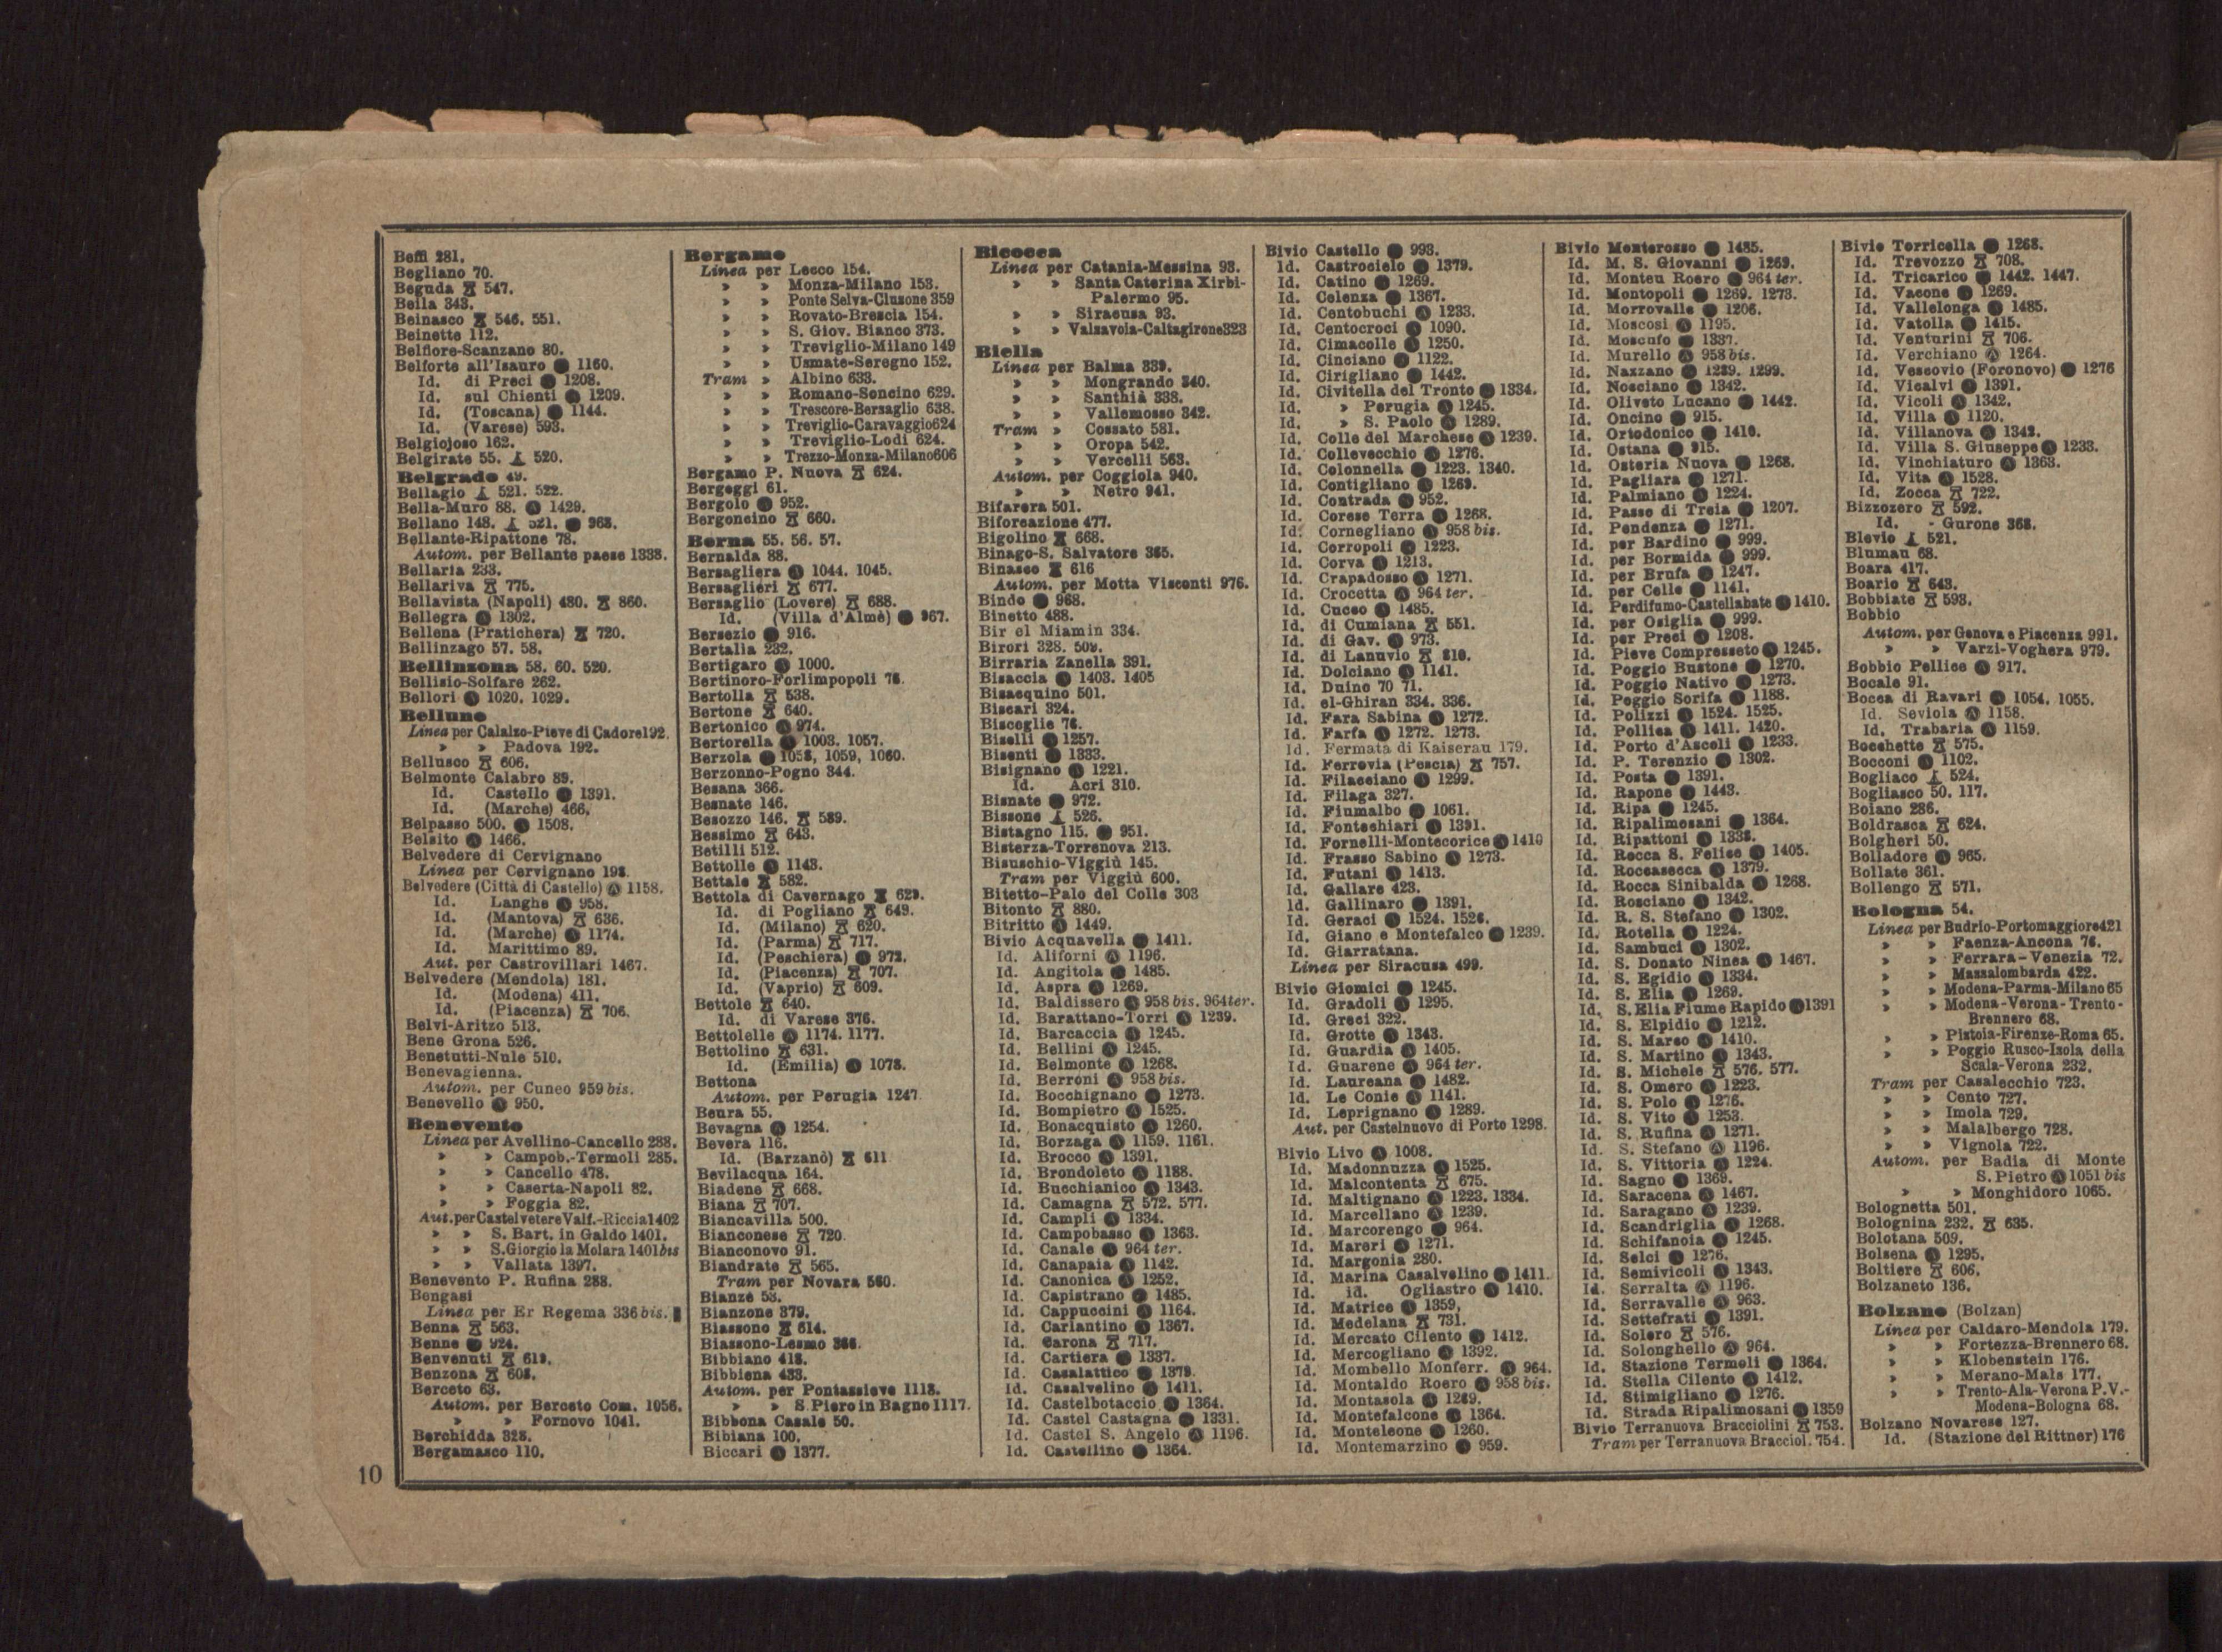 Beffi 281.
Begliano 70.
Beguda 547.
Beila 343.
Beinasco 546. 551.
Beinette 112.
Belfiore-Scanzano 80.
Belforte all'Isauro Ⓐ 1160.
Id. di Preci Ⓐ 1208.
Id. sul Chienti Ⓐ 1209.
Id. (Toscana) Ⓐ 1144.
Id. (Varese) 593.
Belgiojoso 162.
Belgirate 55. 520.
Belgrado 49.
Bellagio 521. 522.
Bella-Muro 88. Ⓐ 1429.
Bellano 148. 521. Ⓐ 968.
Bellante-Ripattone 78.
Autom. per Bellante paese 1338.
Bellaria 233.
Bellariva 775.
Bellavista (Napoli) 480. 860.
Bellegra Ⓐ 1302.
Bellena (Pratichera) 720.
Bellinzago 57. 58.
Bellinzona 58. 60. 520.
Bellisio-Solfare 262.
Bellori Ⓐ 1020. 1029.
Belluno
Linea per Calalzo-Pieve di Cadore192.
» » Padova 192.
Bellusco 606.
Belmonte Calabro 89.
Id. Castello Ⓐ 1391.
Id. (Marche) 466.
Belpasso 500. Ⓐ 1508.
Belsito Ⓐ 1466.
Belvedere di Cervignano
Linea per Cervignano 198.
Belvedere (Città di Castello) Ⓐ 1158.
Id. Langhe Ⓐ 958.
Id. (Mantova) 636.
Id. (Marche) Ⓐ 1174.
Id. Marittimo 89.
Aut. per Castrovillari 1467.
Belvedere (Mendola) 181.
Id. (Modena) 411.
Id. (Piacenza) 706.
Belvi-Aritzo 513.
Bene Grona 526.
Benetutti-Nule 510.
Benevagienna.
Autom. per Cuneo 959 bis.
Benevello Ⓐ 950.
Benevento
Linea per Avellino-Cancello 288.
» » Campob.-Termoli 285.
» » Cancello 478.
» » Caserta-Napoli 82.
» » Foggia 82.
Aut.perCastelvetereValf.-Riccia1402
» » S. Bart. in Galdo 1401.
» » S.Giorgio la Molara 1401bis
» » Vallata 1397.
Benevento P. Rufina 288.
Bengasi
Linea per Er Regema 336 bis.
Benna 563.
Benne Ⓐ 924.
Benvenuti 619.
Benzona 608.
Berceto 63.
Autom. per Berceto Com. 1056.
» » Fornovo 1041.
Berchidda 328.
Bergamasco 110.
Bergamo
Linea per Lecco 154.
» » Monza-Milano 153.
» » Ponte Selva-Clusone 359
» » Rovato-Brescia 154.
» » S. Giov. Bianco 373.
» » Treviglio-Milano 149
» » Usmate-Seregno 152.
Tram » Albino 633.
» » Romano-Soncino 629.
» » Trescore-Bersaglio 638.
» » Treviglio-Caravaggio624
» » Treviglio-Lodi 624.
» » Trezzo-Monza-Milano606
Bergamo P. Nuova 624.
Bergeggi 61.
Bergolo Ⓐ 952.
Bergoncino 660.
Berna 55. 56. 57.
Bernalda 88.
Bersagliera Ⓐ 1044. 1045.
Bersaglieri 677.
Bersaglio (Lovere) 688.
Id. (Villa d'Almè) Ⓐ 967.
Bersezio Ⓐ 916.
Bertalia 232.
Bertigaro Ⓐ 1000.
Bertinoro-Forlimpopoli 76.
Bertolla 538.
Bertone 640.
Bertonico Ⓐ 974.
Bertorella Ⓐ 1003. 1057.
Berzola Ⓐ 1058, 1059, 1060.
Berzonno-Pogno 344.
Besana 366.
Besnate 146.
Besozzo 146. 589.
Bessimo 643.
Betilli 512.
Bettolle Ⓐ 1143.
Bettale 582.
Bettola di Cavernago 629.
Id. di Pogliano 649.
Id. (Milano) 620.
Id. (Parma) 717.
Id. (Peschiera) Ⓐ 972.
Id. (Piacenza) 707.
Id. (Vaprio) 609.
Bettole 640.
Id. di Varese 376.
Bettolelle Ⓐ 1174. 1177.
Bettolino 631.
Id. (Emilia) Ⓐ 1073.
Bettona
Autom. per Perugia 1247.
Beura 55.
Bevagna Ⓐ 1254.
Bevera 116.
Id. (Barzanò) 611
Bevilacqua 164.
Biadene 668.
Biana 707.
Biancavilla 500.
Bianconese 720.
Bianconovo 91.
Biandrate 565.
Tram per Novara 560.
Bianzè 53.
Bianzone 379.
Biassono 614.
Biassono-Lesmo 366.
Bibbiano 418.
Bibbiena 433.
Autom. per Pontassieve 1118.
» » S. Piero in Bagno 1117.
Bibbona Casale 50.
Bibiana 100.
Biccari Ⓐ 1377.
Bicocca
Linea per Catania-Messina 93.
» » Santa Caterina Xirbi-
Palermo 95.
» » Siracusa 93.
» » Valsavoia-Caltagirone323
Biella
Linea per Balma 339.
» » Mongrando 340.
» » Santhià 338.
» » Vallemosso 342.
Tram » Cossato 581.
» » Oropa 542.
» » Vercelli 563.
Autom. per Coggiola 940.
» » Netro 941.
Bifarera 501.
Biforcazione 477.
Bigolino 668.
Binago-S. Salvatore 365.
Binasco 616
Autom. per Motta Visconti 976.
Bindo Ⓐ 968.
Binetto 488.
Bir el Miamin 334.
Birori 328. 509.
Birraria Zanella 391.
Bisaccia Ⓐ 1403. 1405
Bisacquino 501.
Biscari 324.
Bisceglie 76.
Biselli Ⓐ 1257.
Bisenti Ⓐ 1333.
Bisignano Ⓐ 1221.
Id. Acri 310.
Bisnate Ⓐ 972.
Bissone 526.
Bistagno 115. Ⓐ 951.
Bisterza-Torrenova 213.
Bisuschio-Viggiù 145.
Tram per Viggiù 600.
Bitetto-Palo del Colle 303
Bitonto 880.
Bitritto Ⓐ 1449.
Bivio Acquavella Ⓐ 1411.
Id. Aliforni Ⓐ 1196.
Id. Angitola Ⓐ 1485.
Id. Aspra Ⓐ 1269.
Id. Baldissero Ⓐ 958 bis. 964ter.
Id. Barattano-Torri Ⓐ 1239.
Id. Barcaccia Ⓐ 1245.
Id. Bellini Ⓐ 1245.
Id. Belmonte Ⓐ 1268.
Id. Berroni Ⓐ 958 bis.
Id. Bocchignano Ⓐ 1273.
Id. Bompietro Ⓐ 1525.
Id. Bonacquisto Ⓐ 1260.
Id. Borzaga Ⓐ 1159. 1161.
Id. Brocco Ⓐ 1391.
Id. Brondoleto Ⓐ 1188.
Id. Bucchianico Ⓐ 1343.
Id. Camagna 572. 577.
Id. Campli Ⓐ 1334.
Id. Campobasso Ⓐ 1363.
Id. Canale Ⓐ 964 ter.
Id. Canapaia Ⓐ 1142.
Id. Canonica Ⓐ 1252.
Id. Capistrano Ⓐ 1485.
Id. Cappuccini Ⓐ 1164.
Id. Carlantino Ⓐ 1367.
Id. Carona 717.
Id. Cartiera Ⓐ 1337.
Id. Casalattico Ⓐ 1379.
Id. Casalvelino Ⓐ 1411.
Id. Castelbotaccio Ⓐ 1364.
Id. Castel Castagna Ⓐ 1331.
Id. Castel S. Angelo Ⓐ 1196.
Id. Castellino Ⓐ 1364.
Bivio Castello Ⓐ 993.
Id. Castrocielo Ⓐ 1379.
Id. Catino Ⓐ 1269.
Id. Celenza Ⓐ 1367.
Id. Centobuchi Ⓐ 1233.
Id. Centocroci Ⓐ 1090.
Id. Cimacolle Ⓐ 1250.
Id. Cinciano Ⓐ 1122.
Id. Cirigliano Ⓐ 1442.
Id. Civitella del Tronto Ⓐ 1334.
Id. » Perugia Ⓐ 1245.
Id. » S. Paolo Ⓐ 1289.
Id. Colle del Marchese Ⓐ 1239.
Id. Collevecchio Ⓐ 1276.
Id. Colonnella Ⓐ 1223. 1340.
Id. Contigliano Ⓐ 1269.
Id. Contrada Ⓐ 952.
Id. Corese Terra Ⓐ 1268.
Id. Cornegliano Ⓐ 958 bis.
Id. Corropoli Ⓐ 1223.
Id. Corva Ⓐ 1213.
Id. Crapadosso Ⓐ 1271.
Id. Crocetta Ⓐ 964 ter.
Id. Cucco Ⓐ 1485.
Id. di Cumiana 551.
Id. di Gav. Ⓐ 973.
Id. di Lanuvio 810.
Id. Dolciano Ⓐ 1141.
Id. Duino 70 71.
Id. el-Ghiran 334. 336.
Id. Fara Sabina Ⓐ 1272.
Id. Farfa Ⓐ 1272. 1273.
Id. Fermata di Kaiserau 179.
Id. Ferrovia (Pescia) 757.
Id. Filacciano Ⓐ 1299.
Id. Filaga 327.
Id. Fiumalbo Ⓐ 1061.
Id. Fontechiari Ⓐ 1391.
Id. Fornelli-Montecorice Ⓐ 1410
Id. Frasso Sabino Ⓐ 1273.
Id. Futani Ⓐ 1413.
Id. Gallare 423.
Id. Gallinaro Ⓐ 1391.
Id. Geraci Ⓐ 1524. 1526.
Id. Giano e Montefalco Ⓐ 1239.
Id. Giarratana.
Linea per Siracusa 499.
Bivio Giomici Ⓐ 1245.
Id. Gradoli Ⓐ 1295.
Id. Greci 322.
Id. Grotte Ⓐ 1343.
Id. Guardia Ⓐ 1405.
Id. Guarene Ⓐ 964 ter.
Id. Laureana Ⓐ 1482.
Id. Le Conie Ⓐ 1141.
Id. Leprignano Ⓐ 1289.
Aut. per Castelnuovo di Porto 1298.
Bivio Livo Ⓐ 1008.
Id. Madonnuzza Ⓐ 1525.
Id. Malcontenta 675.
Id. Maltignano Ⓐ 1223. 1334.
Id. Marcellano Ⓐ 1239.
Id. Marcorengo Ⓐ 964.
Id. Mareri Ⓐ 1271.
Id. Margonia 280.
Id. Marina Casalvelino Ⓐ 1411.
Id. id. Ogliastro Ⓐ 1410.
Id. Matrice Ⓐ 1359,
Id. Medelana 731.
Id. Mercato Cilento Ⓐ 1412.
Id. Mercogliano Ⓐ 1392.
Id. Mombello Monferr. Ⓐ 964.
Id. Montaldo Roero Ⓐ 958 bis.
Id. Montasola Ⓐ 1269.
Id. Montefalcone Ⓐ 1364.
Id. Monteleone Ⓐ 1260.
Id. Montemarzino Ⓐ 959.
Bivio Monterosso Ⓐ 1485.
Id. M. S. Giovanni Ⓐ 1269.
Id. Monteu Roero Ⓐ 964 ter.
Id. Montopoli Ⓐ 1269. 1273.
Id. Morrovalle Ⓐ 1206.
Id. Moscosi Ⓐ 1195.
Id. Moscufo Ⓐ 1337.
Id. Murello Ⓐ 958 bis.
Id. Nazzano Ⓐ 1289. 1299.
Id. Nosciano Ⓐ 1342.
Id. Oliveto Lucano Ⓐ 1442.
Id. Oncino Ⓐ 915.
Id. Ortodonico Ⓐ 1410.
Id. Ostana Ⓐ 915.
Id. Osteria Nuova Ⓐ 1268.
Id. Pagliara Ⓐ 1271.
Id. Palmiano Ⓐ 1224.
Id. Passo di Treia Ⓐ 1207.
Id. Pendenza Ⓐ 1271.
Id. per Bardino Ⓐ 999.
Id. per Bormida Ⓐ 999.
Id. per Brufa Ⓐ 1247.
Id. per Celle Ⓐ 1141.
Id. Perdifumo-Castellabate Ⓐ 1410.
Id. per Osiglia Ⓐ 999.
Id. per Preci Ⓐ 1208.
Id. Pieve Compresseto Ⓐ 1245.
Id. Poggio Bustone Ⓐ 1270.
Id. Poggio Nativo Ⓐ 1273.
Id. Poggio Sorifa Ⓐ 1188.
Id. Polizzi Ⓐ 1524. 1525.
Id. Pollica Ⓐ 1411. 1420.
Id. Porto d'Ascoli Ⓐ 1233.
Id. P. Terenzio Ⓐ 1302.
Id. Posta Ⓐ 1391.
Id. Rapone Ⓐ 1443.
Id. Ripa Ⓐ 1245.
Id. Ripalimosani Ⓐ 1364.
Id. Ripattoni Ⓐ 1338.
Id. Rocca S. Felice Ⓐ 1405.
Id. Roccasecca Ⓐ 1379.
Id. Rocca Sinibalda Ⓐ 1268.
Id. Rosciano Ⓐ 1342.
Id. R. S. Stefano Ⓐ 1302.
Id. Rotella Ⓐ 1224.
Id. Sambuci Ⓐ 1302.
Id. S. Donato Ninea Ⓐ 1467.
Id. S. Egidio Ⓐ 1334.
Id. S. Elia Ⓐ 1269.
Id. S. Elia Fiume Rapido Ⓐ1391
Id. S. Elpidio Ⓐ 1212.
Id. S. Marso Ⓐ 1410.
Id. S. Martino Ⓐ 1343.
Id. S. Michele 576. 577.
Id. S. Omero Ⓐ 1223.
Id. S. Polo Ⓐ 1276.
Id. S. Vito Ⓐ 1253.
Id. S. Rufina Ⓐ 1271.
Id. S. Stefano Ⓐ 1196.
Id. S. Vittoria Ⓐ 1224.
Id. Sagno Ⓐ 1369.
Id. Saracena Ⓐ 1467.
Id. Saragano Ⓐ 1239.
Id. Scandriglia Ⓐ 1268.
Id. Schifanoia Ⓐ 1245.
Id. Selci Ⓐ 1276.
Id. Semivicoli Ⓐ 1343.
Id. Serralta Ⓐ 1196.
Id. Serravalle Ⓐ 963.
Id. Settefrati Ⓐ 1391.
Id. Solero 576.
Id. Solonghello Ⓐ 964.
Id. Stazione Termoli Ⓐ 1364.
Id. Stella Cilento Ⓐ 1412.
Id. Stimigliano Ⓐ 1276.
Id. Strada Ripalimosani Ⓐ 1359
Bivio Terranuova Bracciolini 753.
Tram per Terranuova Bracciol. 754.
Bivio Torricella Ⓐ 1268.
Id. Trevozzo 708.
Id. Tricarico Ⓐ 1442. 1447.
Id. Vacone Ⓐ 1269.
Id. Vallelonga Ⓐ 1485.
Id. Vatolla Ⓐ 1415.
Id. Venturini 706.
Id. Verchiano Ⓐ 1264.
Id. Vescovio (Foronovo) Ⓐ 1276
Id. Vicalvi Ⓐ 1391.
Id. Vicoli Ⓐ 1342.
Id. Villa Ⓐ 1120.
Id. Villanova Ⓐ 1342.
Id. Villa S. Giuseppe Ⓐ 1233.
Id. Vinchiaturo Ⓐ 1363.
Id. Vita Ⓐ 1528.
Id. Zocca 722.
Bizzozero 592.
Id. - Gurone 368.
Blevio 521.
Blumau 68.
Boara 417.
Boario 643.
Bobbiate 593.
Bobbio
Autom. per Genova e Piacenza 991.
» » Varzi-Voghera 979.
Bobbio Pellice Ⓐ 917.
Bocale 91.
Bocca di Ravari Ⓐ 1054. 1055.
Id. Seviola Ⓐ 1158.
Id. Trabaria Ⓐ 1159.
Bocchette 575.
Bocconi Ⓐ 1102.
Bogliaco 524.
Bogliasco 50. 117.
Boiano 286.
Boldrasca 624.
Bolgheri 50.
Bolladore Ⓐ 965.
Bollate 361.
Bollengo 571.
Bologna 54.
Linea per Budrio-Portomaggiore421
» » Faenza-Ancona 76.
» » Ferrara-Venezia 72.
» » Massalombarda 422.
» » Modena-Parma-Milano 65
» » Modena-Verona-Trento-
Brennero 68.
» » Pistoia-Firenze-Roma 65.
» » Poggio Rusco-Isola della
Scala-Verona 232.
Tram per Casalecchio 723.
» » Cento 727.
» » Imola 729.
» » Malalbergo 728.
» » Vignola 722.
Autom. per Badia di Monte
S. Pietro Ⓐ 1051 bis
» » Monghidoro 1065.
Bolognetta 501.
Bolognina 232. 635.
Bolotana 509.
Bolsena Ⓐ 1295.
Boltiere 606.
Bolzaneto 136.
Bolzano (Bolzan)
Linea per Caldaro-Mendola 179.
» » Fortezza-Brennero 68.
» » Klobenstein 176.
» » Merano-Mals 177.
» » Trento-Ala-Verona P.V.-
Modena-Bologna 68.
Bolzano Novarese 127.
Id. (Stazione del Rittner) 176
10